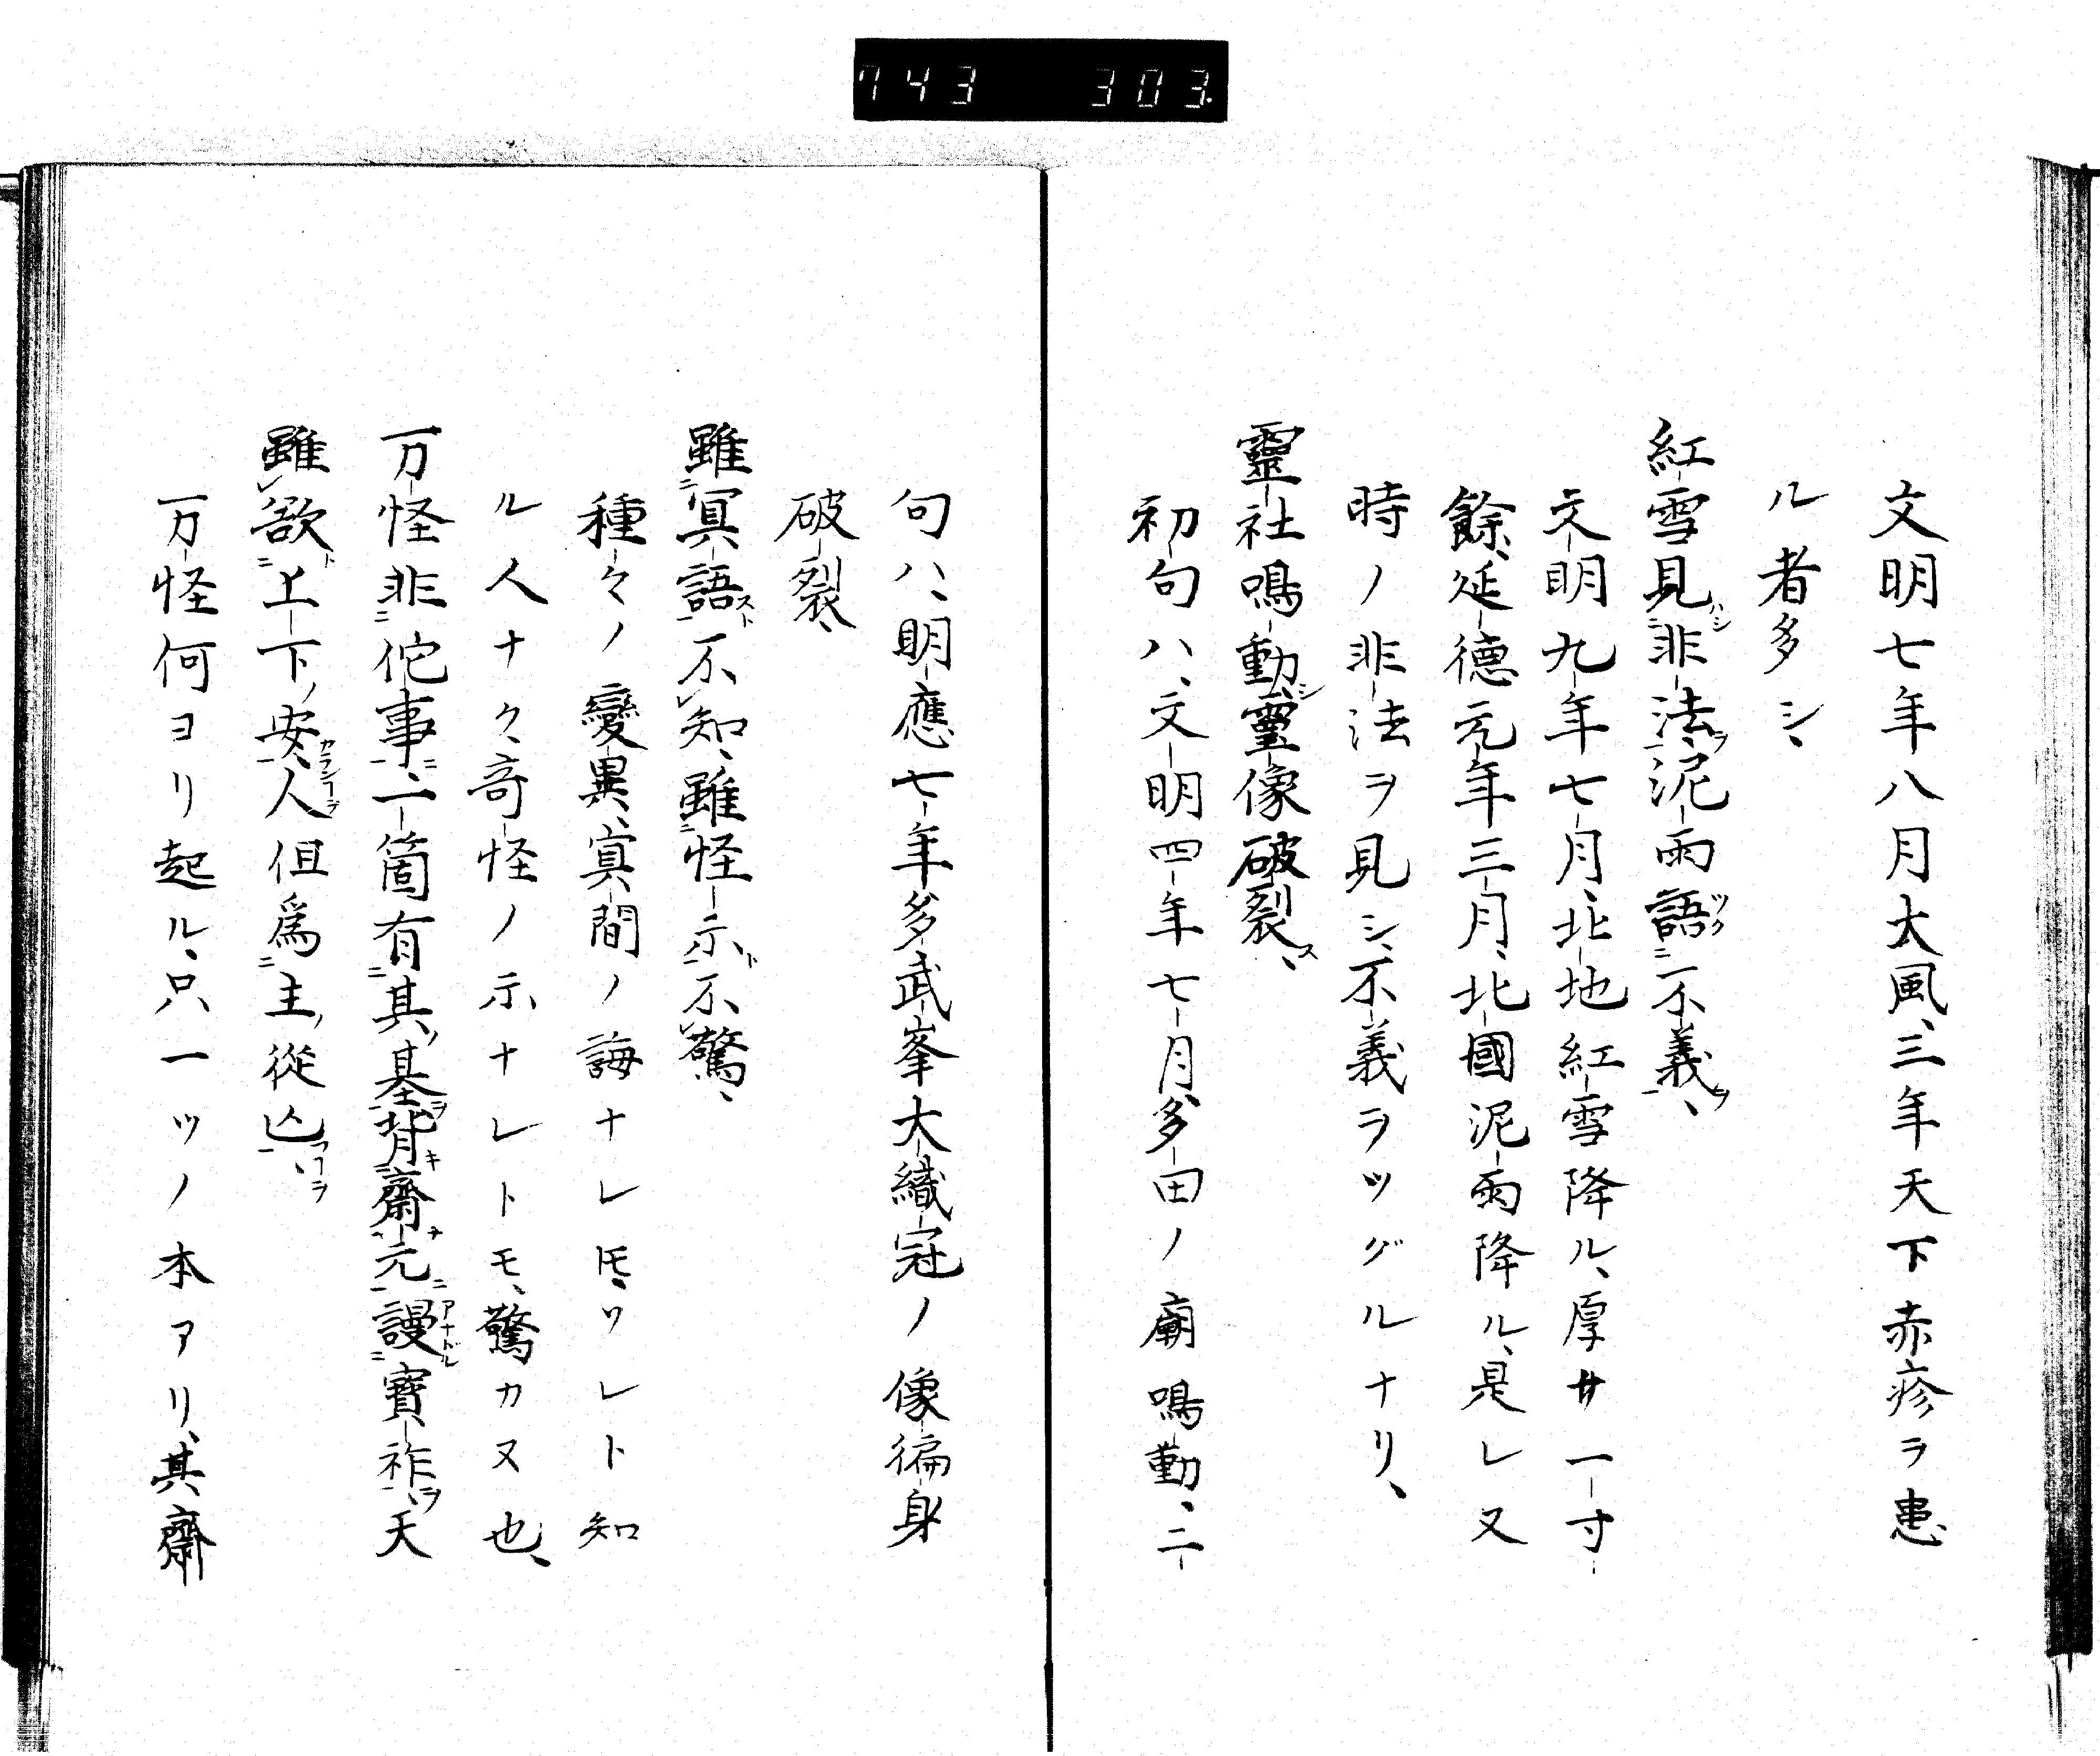 743 303.
文明七年八月大風、三年天下赤疹ヲ患
ル者多シ、
紅雪見非法、泥雨語不義、
文明九年七月、北地紅雪降ル、厚サ一寸
餘、延德元年三月、北國泥雨降ル、是レ又
時ノ非法ヲ見シ、不義ヲツグルナリ、
靈社鳴動、靈像破裂、
初句ハ、文明四年七月、多田ノ廟鳴動、二
句ハ、明應七年多武峯大織冠ノ像徧身
破裂、
雖冥語不知、雖怪示不驚、
種々ノ變異、冥間ノ誨ナレ𪜈、ソレト知
ル人ナク、奇怪ノ示ナレトモ、驚カヌ也、
万怪非佗事、一箇有其基、背齋元謾寶祚、天
雖欲上下安、人但爲主從凶、
万怪何ヨリ起ル、只一ツノ本アリ、其齋